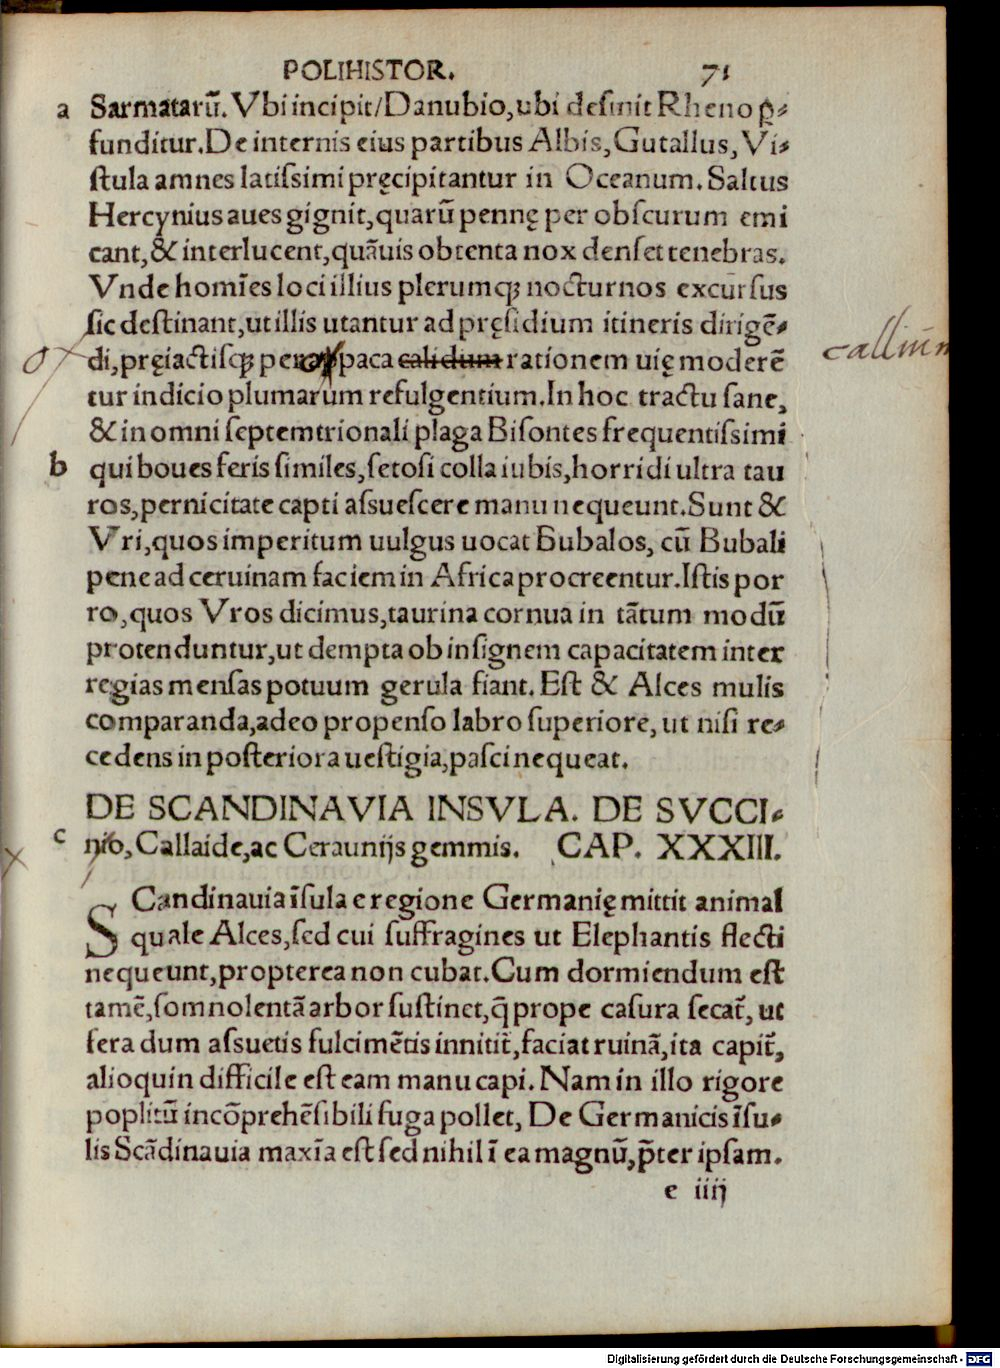 POLIHISTOR. 71
a Sarmatarū. Vbi incipit/Danubio, ubi desinit Rheno ꝑ-
funditur. De internis eius partibus Albis, Gutallus, Vi-
stula amnes latissimi pręcipitantur in Oceanum. Saltus
Hercynius aues gignit, quarū pennę per obscurum emi
cant, & interlucent, quāuis obtenta nox denset tenebras.
Vnde homīes loci illius plerumqꝫ nocturnos excursus
sic destinant, ut illis utantur ad pręsidium itineris dirigē-
di, pręiactisqꝫ per paca calidium rationem uię moderē callium
tur indicio plumarum refulgentium. In hoc tractu sane,
& in omni septemtrionali plaga Bisontes frequentissimi
b qui boues feris similes, setosi colla iubis, horridi ultra tau
ros, pernicitate capti assuescere manu nequeunt. Sunt &
Vri, quos imperitum uulgus uocat Bubalos, cū Bubali
pene ad ceruinam faciem in Africa procreentur. Istis por
ro, quos Vros dicimus, taurina cornua in tātum modū
protenduntur, ut dempta ob insignem capacitatem inter
regias mensas potuum gerula fiant. Est & Alces mulis
comparanda, adeo propenso labro superiore, ut nisi re-
cedens in posteriora uestigia, pasci nequeat.
DE SCANDINAVIA INSVLA. DE SVCCI-
c nio, Callaide, ac Ceraunijs gemmis. CAP. XXXIII.
SCandinauia īsula e regione Germanię mittit animal
quale Alces, sed cui suffragines ut Elephantis flecti
nequeunt, propterea non cubat. Cum dormiendum est
tamē, somnolentā arbor sustinet, q̄ prope casura secat᷑, ut
fera dum assuetis fulcimētis innitit᷑, faciat ruinā, ita capit᷑,
alioquin difficile est eam manu capi. Nam in illo rigore
poplitū incōprehēsibili fuga pollet, De Germanicis īsu-
lis Scādinauia maxīa est sed nihil ī ea magnū, p̄ter ipsam.
e iiij
Digitalisierung gefördert durch die Deutsche Forschungsgemeinschaft - DFG